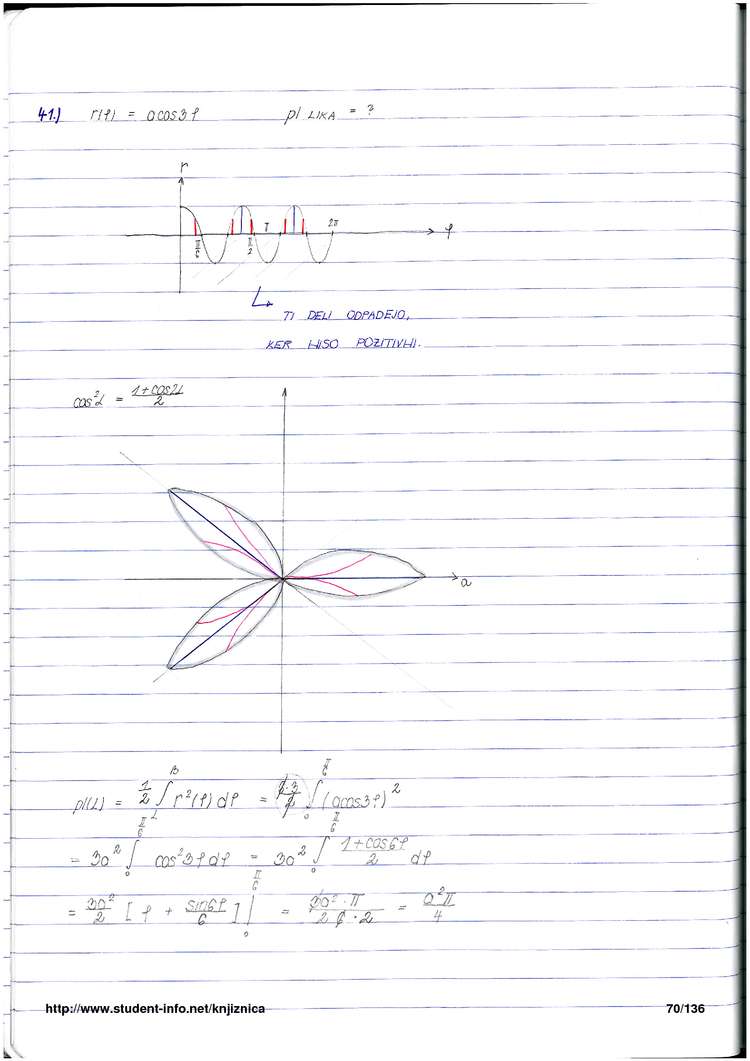 41.) r(φ) = a cos 3φ pl LIKA = ?
r
π/6 π/2 π 2π φ
TI DELI ODPADEJO,
KER NISO POZITIVNI.
cos²α = (1+cos2α)/2
a
pl(L) = 1/2 ∫_α^β r²(φ) dφ = (6·3)/2 ∫_0^{π/6} (a cos3φ)²
= 3a² ∫_0^{π/6} cos²3φ dφ = 3a² ∫_0^{π/6} (1+cos6φ)/2 dφ
= 3a²/2 [φ + sin6φ/6] |_0^{π/6} = (3a²·π)/(2 6·2) = a²π/4
http://www.student-info.net/knjiznica 70/136